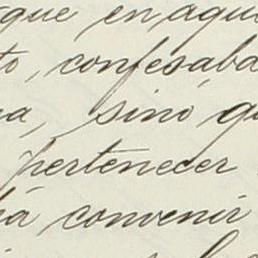 que en aqu
to, confesaba
a, sinó qu
pertenecer
á convenir